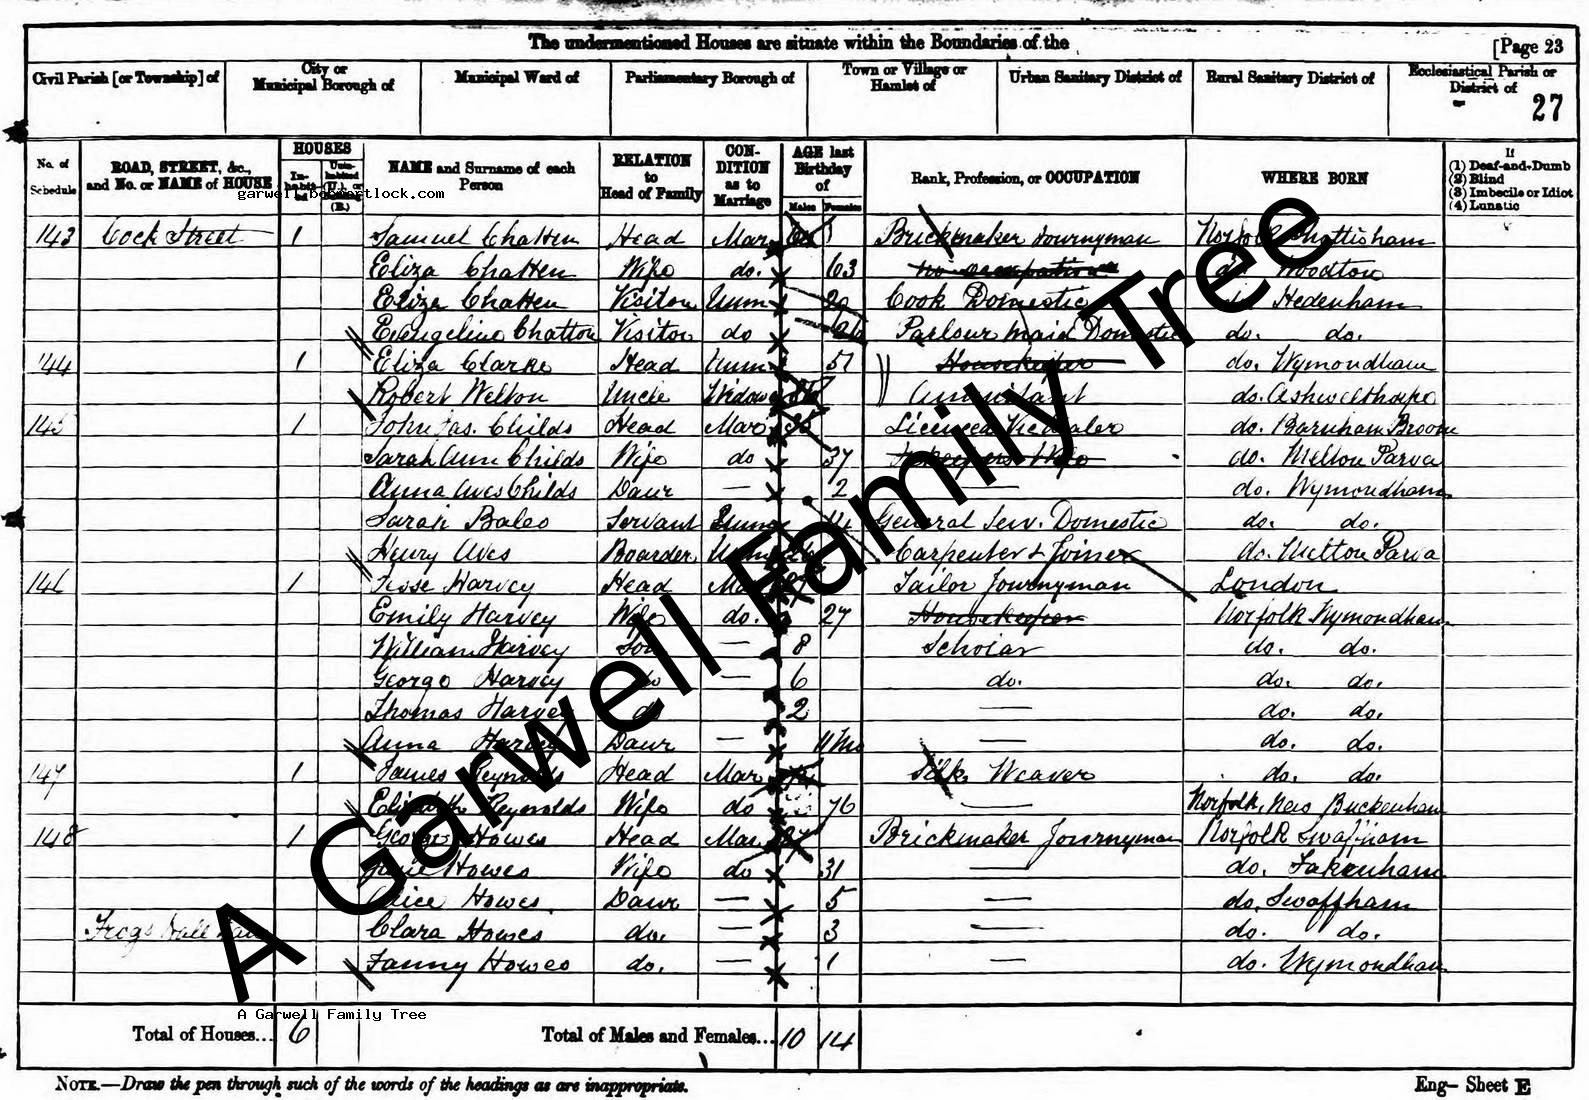 The undermentioned Houses are situate within the Boundaries of the
[Page 23
Civil Parish [or Township] of
City or Municipal Borough of
Municipal Ward of
Parliamentary Borough of
Town or Village or Hamlet of
Urban Sanitary District of
Rural Sanitary District of
Ecclesiastical Parish or District of
27
No. of Schedule
ROAD, STREET, &c., and No. or NAME of HOUSE
HOUSES
In-habited
Unin-habited (U.), or Building (B.)
NAME and Surname of each Person
RELATION to Head of Family
CON-DITION as to Marriage
AGE last Birthday of
Males Females
Rank, Profession, or OCCUPATION
WHERE BORN
If
(1) Deaf-and-Dumb
(2) Blind
(3) Imbecile or Idiot
(4) Lunatic
garwell.boxwortlock.com
143 Cock Street 1 Samuel Chatten Head Mar Brickmaker Journyman Norfolk
Eliza Chatten Wife do. 63 no occupation do. Woodton
Eliza Chatten Visitor Unm Cook Domestic Hedenham
Evangeline Chatton Visitor do Parlour maid Domestic do. do.
144 1 Eliza Clarke Head Unm 51 Housekeeper do. Wymondham
Robert Welton Uncle Widower Annuitant do. Ashwelthorpe
145 1 John Jas. Childs Head Mar 35 Licenced Victualer do. Barnham Broom
Sarah Ann Childs Wife do 37 do. Melton Parva
Anna Aves Childs Daur — 2 — do. Wymondham
Sarah Bales Servant Unm 14 General Serv. Domestic do. do.
Henry Aves Boarder Unm Carpenter & Joiner do. Melton Parva
146 1 Jesse Harvey Head Mar Tailor Journyman London
Emily Harvey Wife do. 27 Housekeeper Norfolk Wymondham
William Harvey Son — 8 Scholar do. do.
George Harvey do — 6 do. do. do.
Thomas Harvey do 2 — do. do.
Anna Harvey Daur — 11 Mo — do. do.
147 1 James Reynolds Head Mar Silk Weaver do. do.
Elizabeth Reynolds Wife do 76 — Norfolk, New Buckenham
148 1 George Howes Head Mar Brickmaker Journyman Norfolk Swaffham
Howes Wife do 31 — do. Fakenham
Alice Howes Daur — 5 — do. Swaffham
Frogs Hall Clara Howes do. — 3 — do. do.
Fanny Howes do. — 1 — do. Wymondham
A Garwell Family Tree
A Garwell Family Tree
Total of Houses... 6
Total of Males and Females... 10 14
NOTE.—Draw the pen through such of the words of the headings as are inappropriate.
Eng— Sheet E